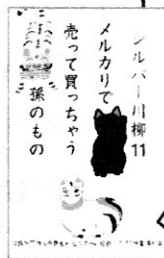 シルバー川柳11
メルカリで
売って買っちゃう
孫のもの